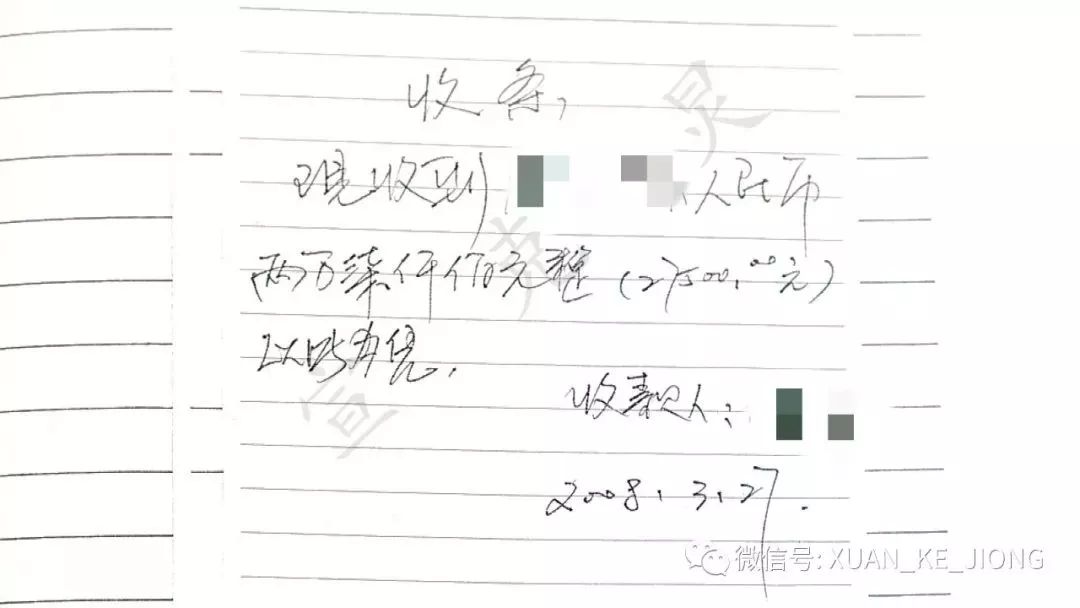 收条,
现收到 人民币
两万柒仟佰元整 (27500.00元)
以此为凭.
收款人:
2008.3.27.
宣克炅
微信号: XUAN_KE_JIONG